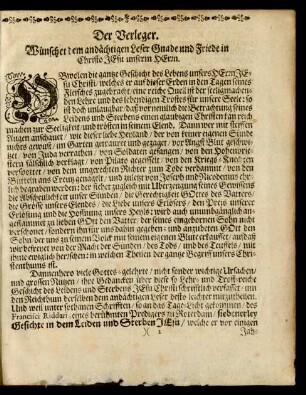 Der Verleger.
Wünschet dem andächtigen Leser Gnade und Friede in
Christo JEsu unserm HErrn.
OBwolen die gantze Geschicht des Lebens unsers HErrn JE-
su Christi, welches er auf dieser Erden in den Tagen seines
Fleisches zugebracht, eine reiche Quell ist der seeligmachen-
den Lehre und des lebendigen Trostes für unsere Seele: so
ist doch unläugbar, daß vornemlich die Betrachtung seines
Leidens und Sterbens einen glaubigen Christen kan reich
machen zur Seeligkeit, und trösten in seinem Elend. Dann wer mit steiffen
Augen anschauet, wie dieser liebe Heyland, der von keiner eigenen Sünde
nichts gewust, im Garten getrauret und gezaget, vor Angst Blut geschwi-
tzet, von Juda verrathen, von Soldaten gefangen, von den Hohenprie-
stern fälschlich verklagt, von Pilato gegeisselt, von den Kriegs-Knechten
verspottet, von dem ungerechten Richter zum Tode verdammt, von den
am Creutz genagelt, und zuletzt von Joseph und Nicodemus ehr-
lich begraben worden: der siehet zugleich mit Uberzeugung seines Gewissens
die Abscheulichkeit unser Sünden, die Gerechtigkeit GOttes des Vatters,
die Grösse unsers Elendes, die Liebe unsers Erlösers, den Preiß unserer
Erlösung und die Hoffnung unsers Heyls; wird auch
gesammen zu lieben GOtt den Vatter, der seines eingebohrnen Sohn nicht
verschonet, sondern ihn für uns dahin gegeben: und anzubeten GOtt den
Sohn der uns zu seinem Reich mit seinem eignen Blute erkauffet, auch daß
wir befreyet von der Macht der Sünden, des Tods, und des Teuffels, mit
ihme ewiglich herrschen: in welchen Theilen der gantze Begriff unsers Chri-
stenthums ist.
Dannenhero viele Gottes-gelehrte, nicht sonder wichtige Ursachen
und grossen Nutzen, ihre Gedancken über diese so Lehr- und Trost-reiche
Geschicht des Leidens und Sterbens JEsu Christi schrifftlich verfasset, um
den Reichthum derselben dem andächtigen Leser desto leichter mitzutheilen.
Und weil unter solchen Schrifften, so an das Tage-Liecht gekommen, des
Francisci Ridderi, eines berühmten Predigers zu Rotterdam, siebenerley
Gesichte in dem Leiden und Sterben JEsu, welche er vor einigen
)( 2 Jah-